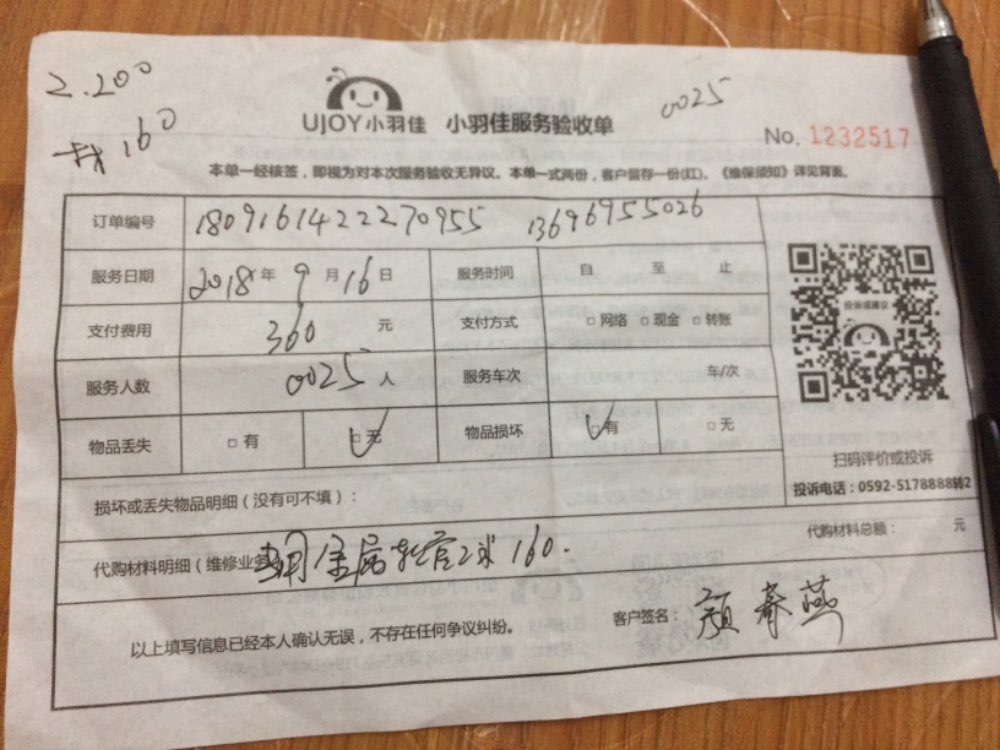 2.200
160
0025
UJOY小羽佳 小羽佳服务验收单
No. 1232517
本单一经核签,即视为对本次服务验收无异议。本单一式两份,客户留存一份(红)。《维保须知》详见背面。
订单编号 180916142222270955 13696955026
服务日期 2018年 9月 16日 服务时间 自 至 止
支付费用 360 元 支付方式 □网络 □现金 □转账
服务人数 0025 人 服务车次 车/次
物品丢失 □有 □无 物品损坏 □有 □无
投诉或建议
扫码评价或投诉
投诉电话:0592-5178888转2
损坏或丢失物品明细(没有可不填):
代购材料总额: 元
代购材料明细(维修业务 金属软管2米160.
客户签名: 颜春燕
以上填写信息已经本人确认无误,不存在任何争议纠纷。